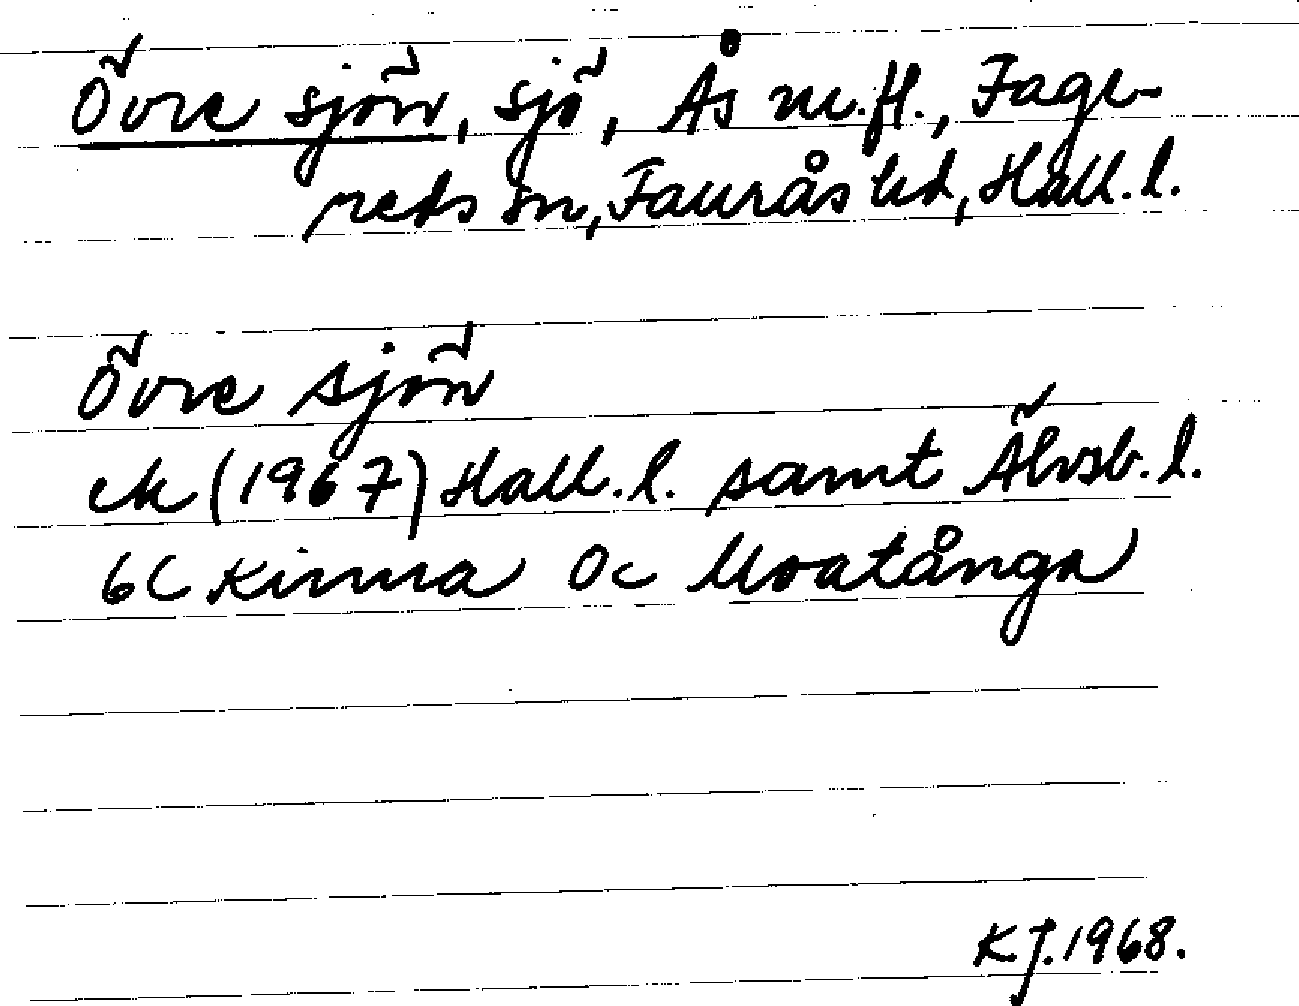 Övre sjön, sjö, Ås m.fl., Fage-
reds sn, Faurås hd, Hall.l.
Övre sjön
ek (1967) Hall.l. samt Älvsb.l.
6C Kinna 0c Moatånga
K.J. 1968.